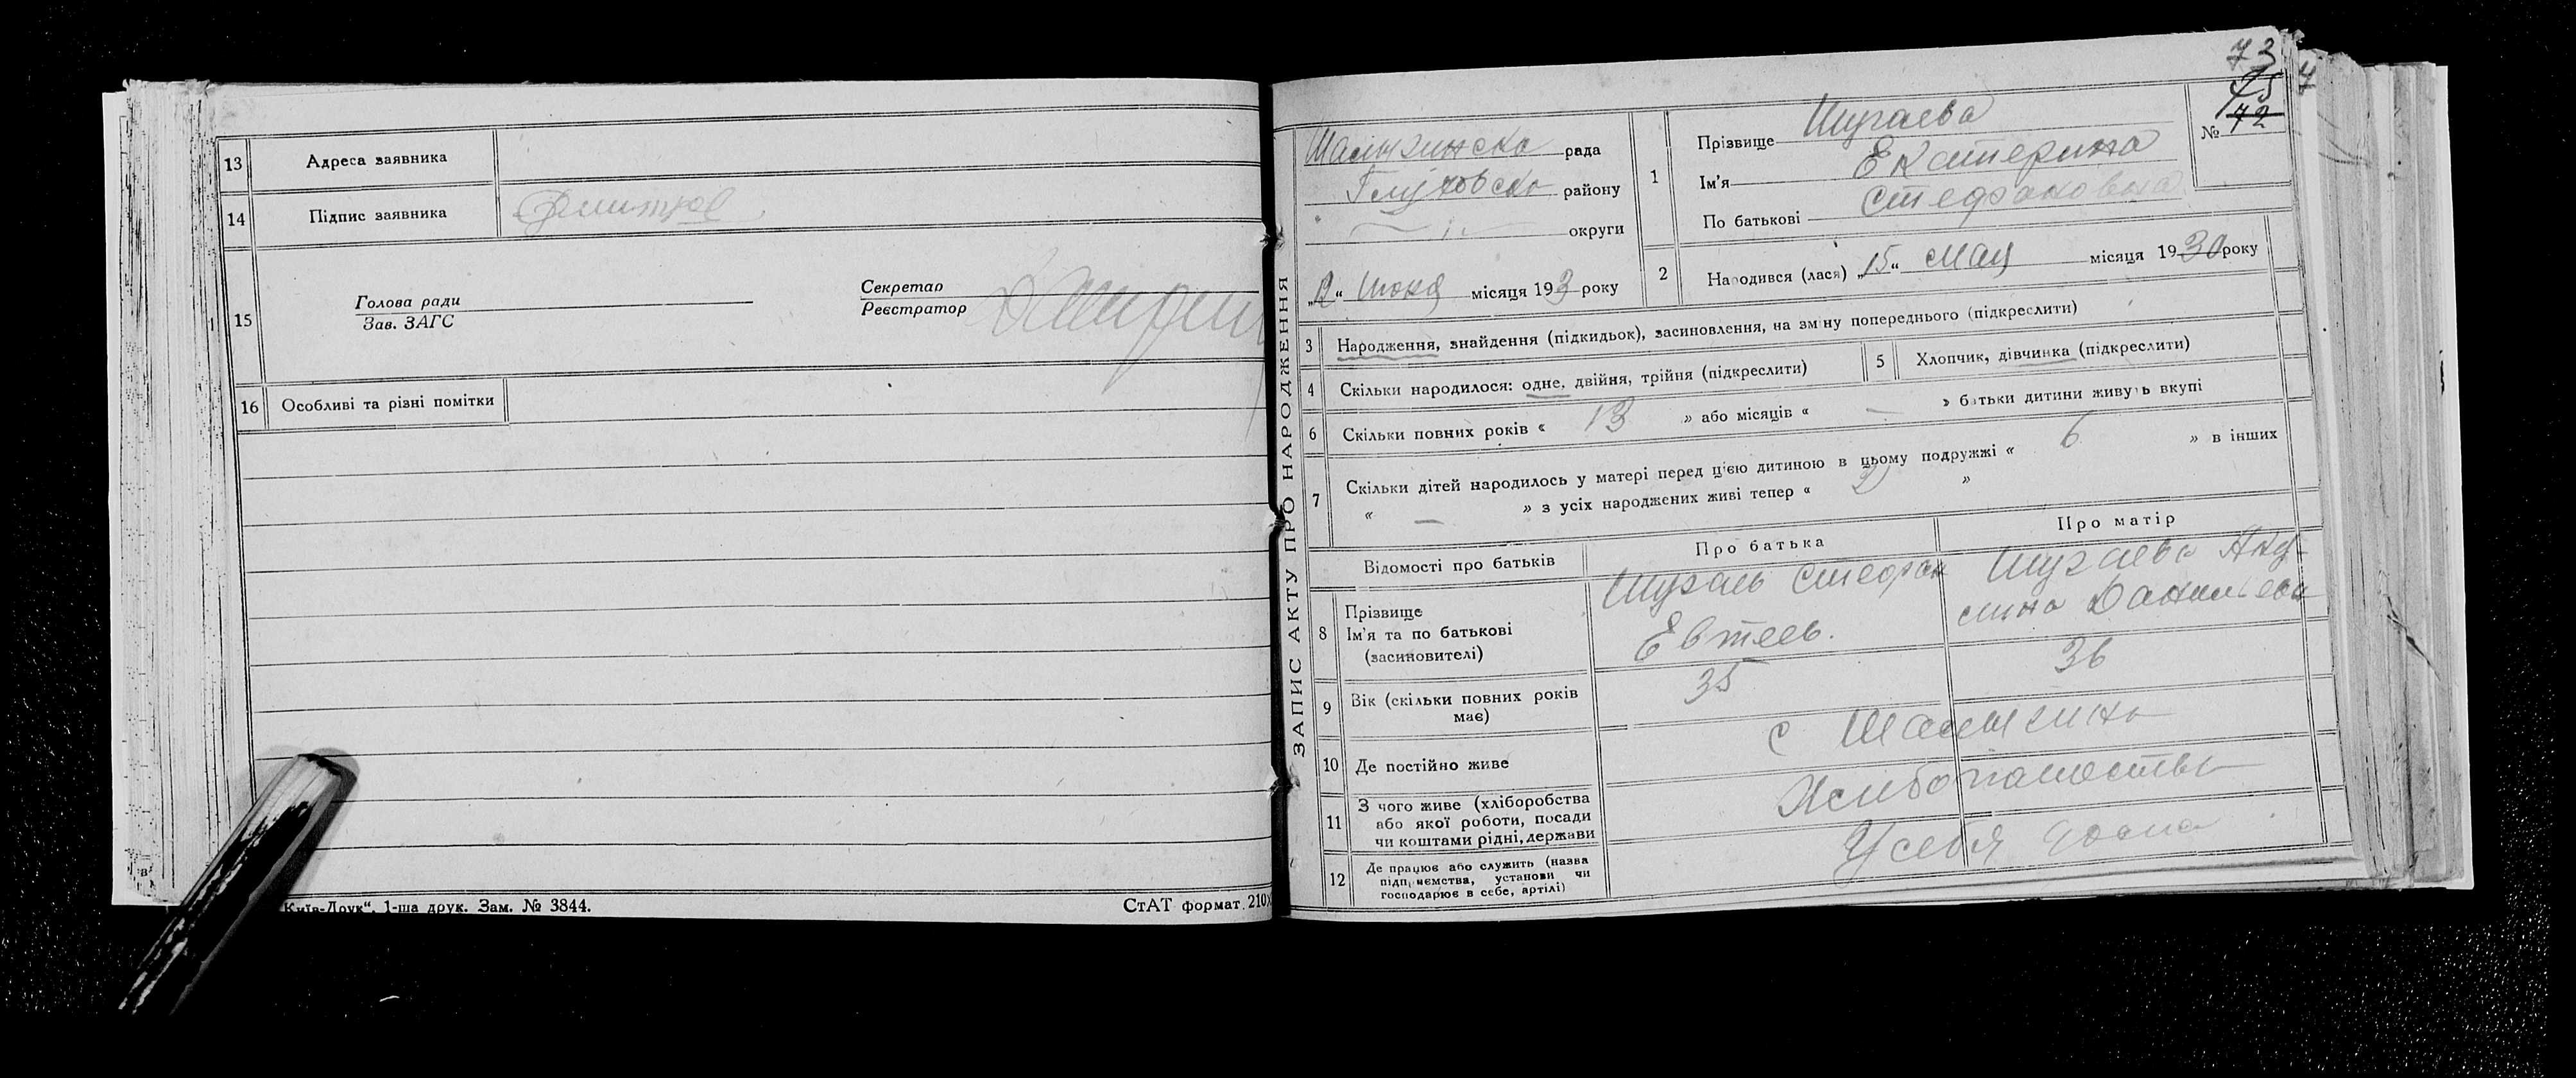 13 Адреса заявника
14 Підпис заявника
15 Голова ради
Зав. ЗАГС
Секретар
Реєстратор
16 Особливі та різні помітки
Київ-Друк“. 1-ша друк. Зам. № 3844.
СтАТ формат. 210
ЗАПИС АКТУ ПРО НАРОДЖЕННЯ
73
75
№ 72
рада
Глуховско району
округи
„2“ июня місяця 193 року
1 Прізвище Шугаева
Ім'я Екатерина
По батькові Стефановна
2 Народився (лася) „15“ мая місяця 1930 року
3 Народження, знайдення (підкидьок), засиновлення, на зміну попереднього (підкреслити)
4 Скільки народилося: одне, двійня, трійня (підкреслити)
5 Хлопчик, дівчинка (підкреслити)
6 Скільки повних років « 13 » або місяців « — » батьки дитини живуть вкупі
7 Скільки дітей народилось у матері перед цією дитиною в цьому подружжі « 6 » в інших
« — » з усіх народжених живі тепер « »
Відомості про батьків
Про батька
Про матір
8 Прізвище
Ім'я та по батькові
(засиновителі)
Шугаев Стефан
Евтеев.
Шугаева Аку-
лина Данильевн
9 Вік (скільки повних років
має)
35
36
10 Де постійно живе
с
11 З чого живе (хліборобства
або якої роботи, посади
чи коштами рідні, держави
Хлебопашество
12 Де працює або служить (назва
підприємства, установи чи
господарює в себе, артілі)
У себя дома